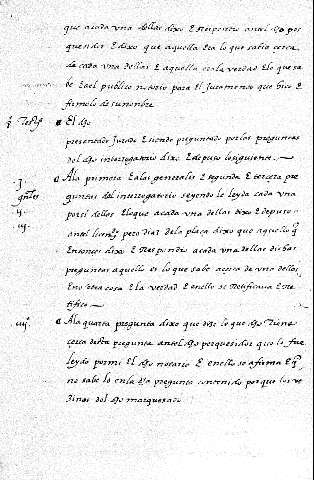 que acada vna dellas dixo E Respondio antel dho pes
quesidor E dixo que aquello Era lo que sabia cerca
de cada vna dellas E aquello era la verdad E lo que sa
be Es el publico notorio para El Juramento que hizo E
firmolo de su nonbre
tesTigo El dho
presentado Jurado E siendo preguntado por las preguntas
del dho interrogatorio dixo E depuso lo siguiente
j. A la primera E a las generales E segunda E tercera pre
gnrales guntas del interrogatorio seyendo le leyda cada vna
ij. por si dellas E lo que a cada vna dellas dixo E depuso
iij. antel licendo pero diaz de la plaza dixo que aquello q
Entonces dixo E Respondio a cada vna dellas dichas
preguntas aquello es lo que sabe acerca de vna dellas
E no otra cosa E la verdad E en ello se Retificaua E Re
tifico
iiij. A la quarta pregunta dixo que dize lo que dho Tiene
cerca desta pregunta antel dho pesquesidor que le fue
leydo por mi El dho notario E en ello se afirma E q
no sabe lo en la dha pregunta contenido porque los ve
zinos del dho marquesado